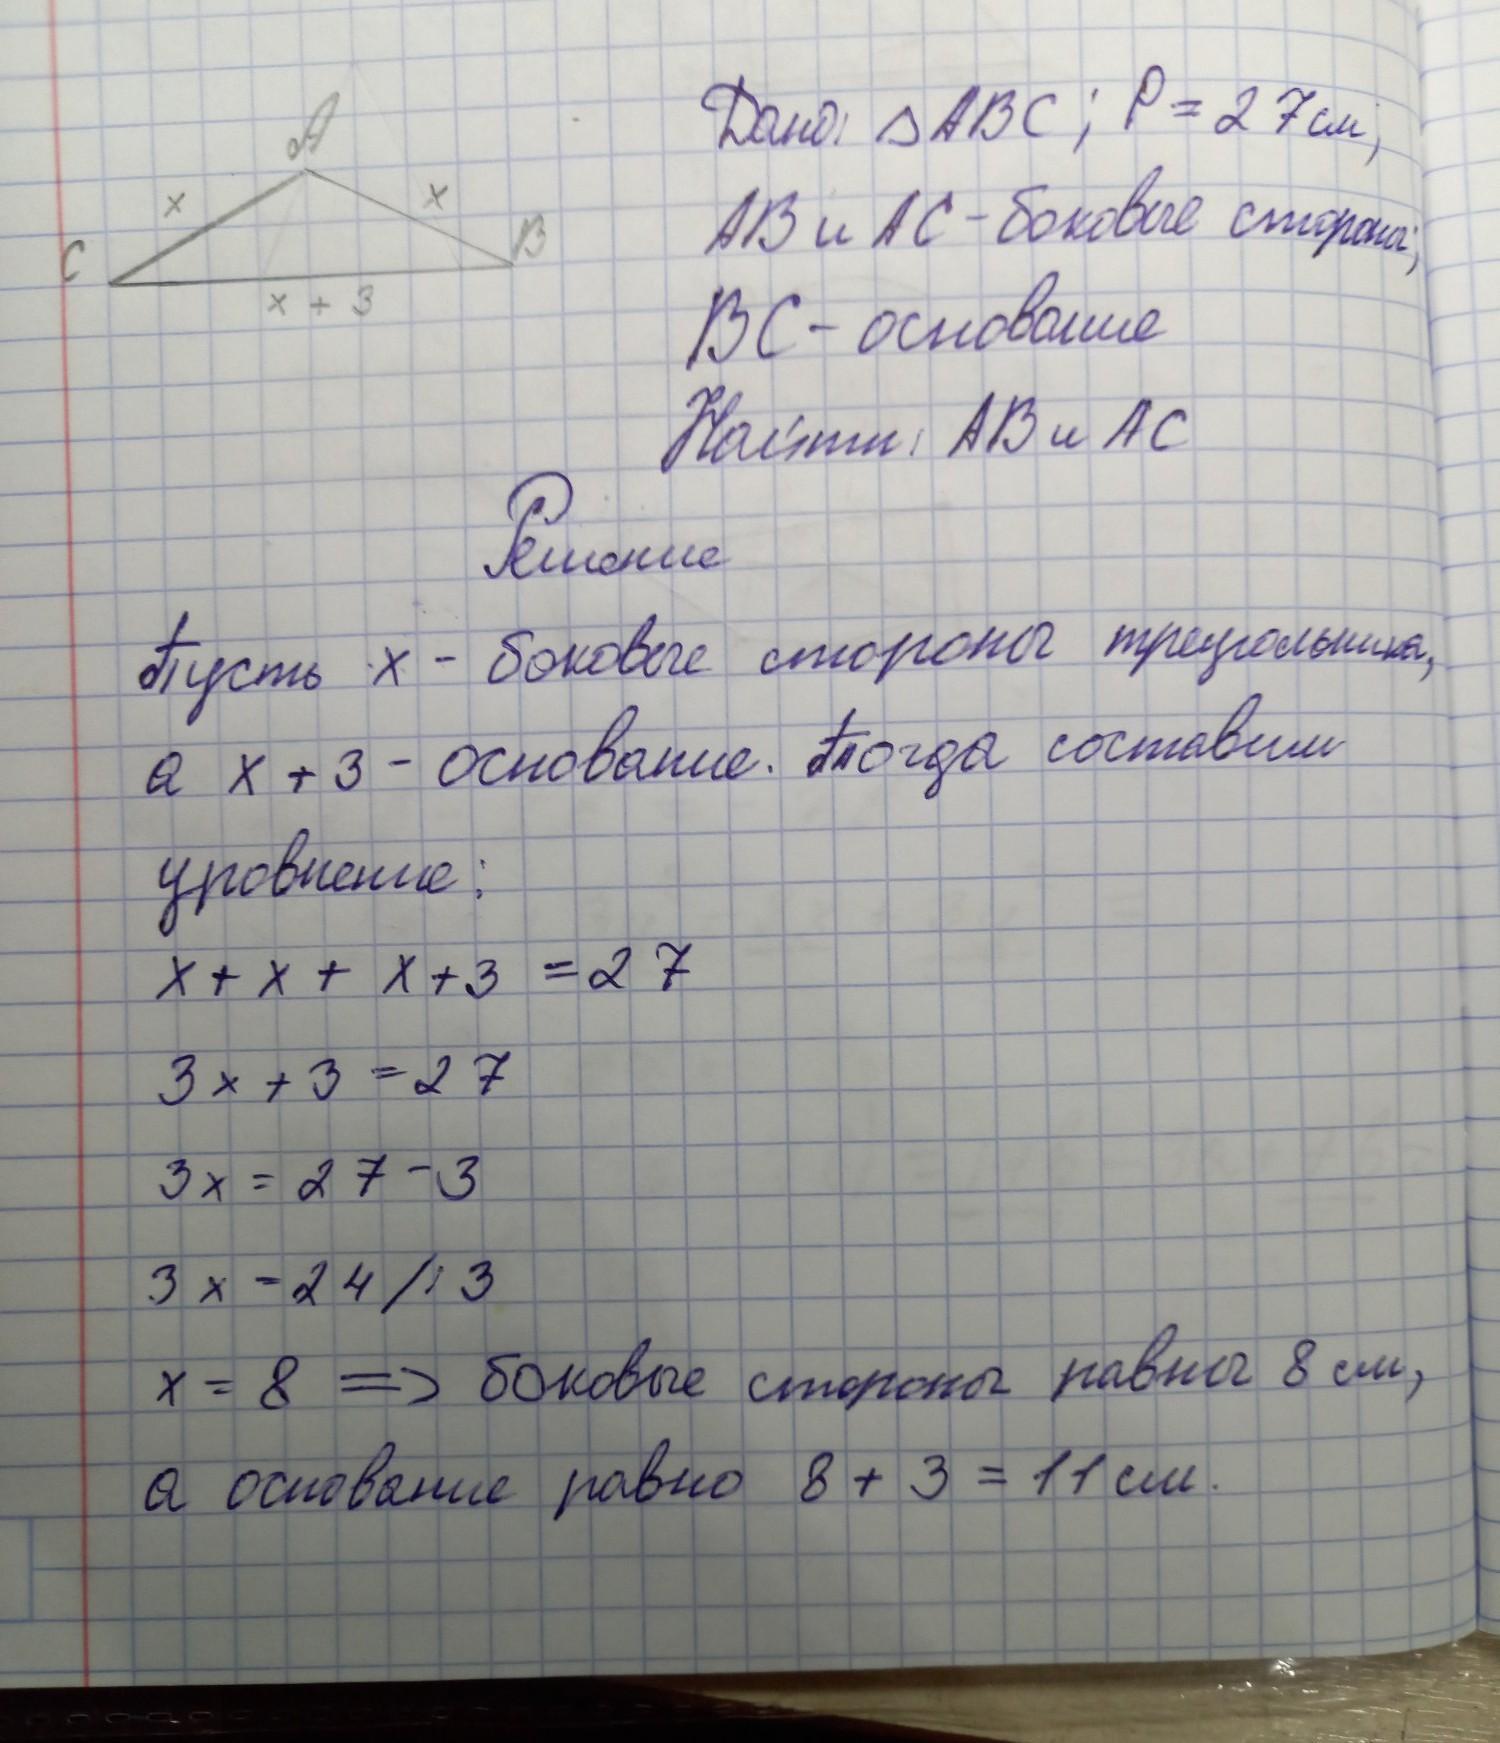 A
x
x
C
B
x + 3
Дано: △ABC; P = 27см,
AB и AC - боковые стороны;
BC - основание
Найти: AB и AC
Решение
Пусть x - боковые стороны треугольника,
а x + 3 - основание. Тогда составим
уровнение:
x + x + x + 3 = 27
3x + 3 = 27
3x = 27 - 3
3x = 24 /: 3
x = 8 => боковые стороны равны 8 см,
а основание равно 8 + 3 = 11 см.